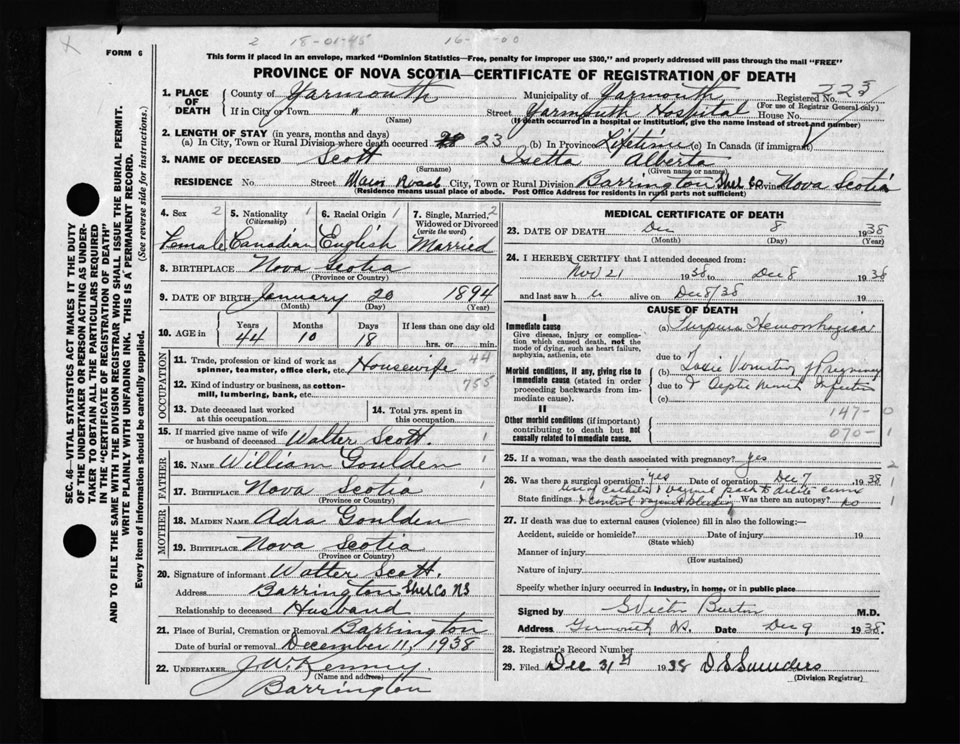 2 18-01-45 16- -00
FORM 6
This form if placed in an envelope, marked "Dominion Statistics—Free, penalty for improper use $300," and properly addressed will pass through the mail "FREE"
PROVINCE OF NOVA SCOTIA—CERTIFICATE OF REGISTRATION OF DEATH
SEC. 46—VITAL STATISTICS ACT MAKES IT THE DUTY
OF THE UNDERTAKER OR PERSON ACTING AS UNDER-
TAKER TO OBTAIN ALL THE PARTICULARS REQUIRED
IN THE "CERTIFICATE OF REGISTRATION OF DEATH"
AND TO FILE THE SAME WITH THE DIVISION REGISTRAR WHO SHALL ISSUE THE BURIAL PERMIT.
WRITE PLAINLY WITH UNFADING INK. THIS IS A PERMANENT RECORD.
Every item of information should be carefully supplied. (See reverse side for instructions.)
1. PLACE OF DEATH County of Yarmouth Municipality of Yarmouth Registered No. 223
(For use of Registrar General only)
If in City or Town " (Name) Street Yarmouth Hospital House No.
(If death occurred in a hospital or institution, give the name instead of street and number)
2. LENGTH OF STAY (in years, months and days)
(a) In City, Town or Rural Division where death occurred 23 (b) In Province Lifetime (c) In Canada (if immigrant)
3. NAME OF DECEASED Scott Isetta Alberta
(Surname) (Given name or names)
RESIDENCE No. Street Main Road City, Town or Rural Division Barrington Shel Co Province Nova Scotia
(Residence means usual place of abode. Post Office Address for residents in rural parts not sufficient)
4. Sex 2 5. Nationality 1 6. Racial Origin 1 7. Single, Married, 2
(Citizenship) Widowed or Divorced
(write the word)
Female Canadian English Married
8. BIRTHPLACE Nova Scotia
(Province or Country)
9. DATE OF BIRTH January 20 1894
(Month) (Day) (Year)
10. AGE in Years Months Days If less than one day old
44 10 18 hrs. or min.
OCCUPATION
11. Trade, profession or kind of work as
spinner, teamster, office clerk, etc. Housewife 44
12. Kind of industry or business, as cotton-
mill, lumbering, bank, etc. 755
13. Date deceased last worked
at this occupation
14. Total yrs. spent in
this occupation
15. If married give name of wife
or husband of deceased Walter Scott. 1
FATHER
16. NAME William Goulden 1
17. BIRTHPLACE Nova Scotia
(Province or Country)
MOTHER
18. MAIDEN NAME Adra Goulden
19. BIRTHPLACE Nova Scotia
(Province or Country)
20. Signature of informant Walter Scott.
Address Barrington Shel Co NS
Relationship to deceased Husband
21. Place of Burial, Cremation or Removal Barrington
Date of burial or removal December 11, 1938
22. UNDERTAKER J. W. Kenney.
(Name and address)
Barrington
MEDICAL CERTIFICATE OF DEATH
23. DATE OF DEATH Dec 8 1938
(Month) (Day) (Year)
24. I HEREBY CERTIFY that I attended deceased from:
Nov 21 1938 to Dec 8 1938
and last saw h er alive on Dec 8/38 19
CAUSE OF DEATH
I
Immediate cause
Give disease, injury or complica-
tion which caused death, not the
mode of dying, such as heart failure,
asphyxia, asthenia, etc
(a) Purpura Hemorrhagica
due to
Morbid conditions, if any, giving rise to
immediate cause (stated in order
proceeding backwards from im-
mediate cause).
(b) Toxic Vomiting of Pregnancy
due to & Septic Mouth Infection
(c)
II
Other morbid conditions (if important)
contributing to death but not
causally related to immediate cause.
147- 0
070- 1
25. If a woman, was the death associated with pregnancy? yes
26. Was there a surgical operation? yes Date of operation Dec 7 1938
State findings use of catheter & vaginal pack to dilate cervix
& control vaginal bleeding Was there an autopsy? no
27. If death was due to external causes (violence) fill in also the following:—
Accident, suicide or homicide? Date of injury 19
(State which)
Manner of injury
(How sustained)
Nature of injury
Specify whether injury occurred in industry, in home, or in public place
Signed by G Victor Burton M.D.
Address Yarmouth NS. Date Dec 9 1938.
28. Registrar's Record Number
29. Filed Dec 31st 1938 D S Saunders
(Division Registrar)